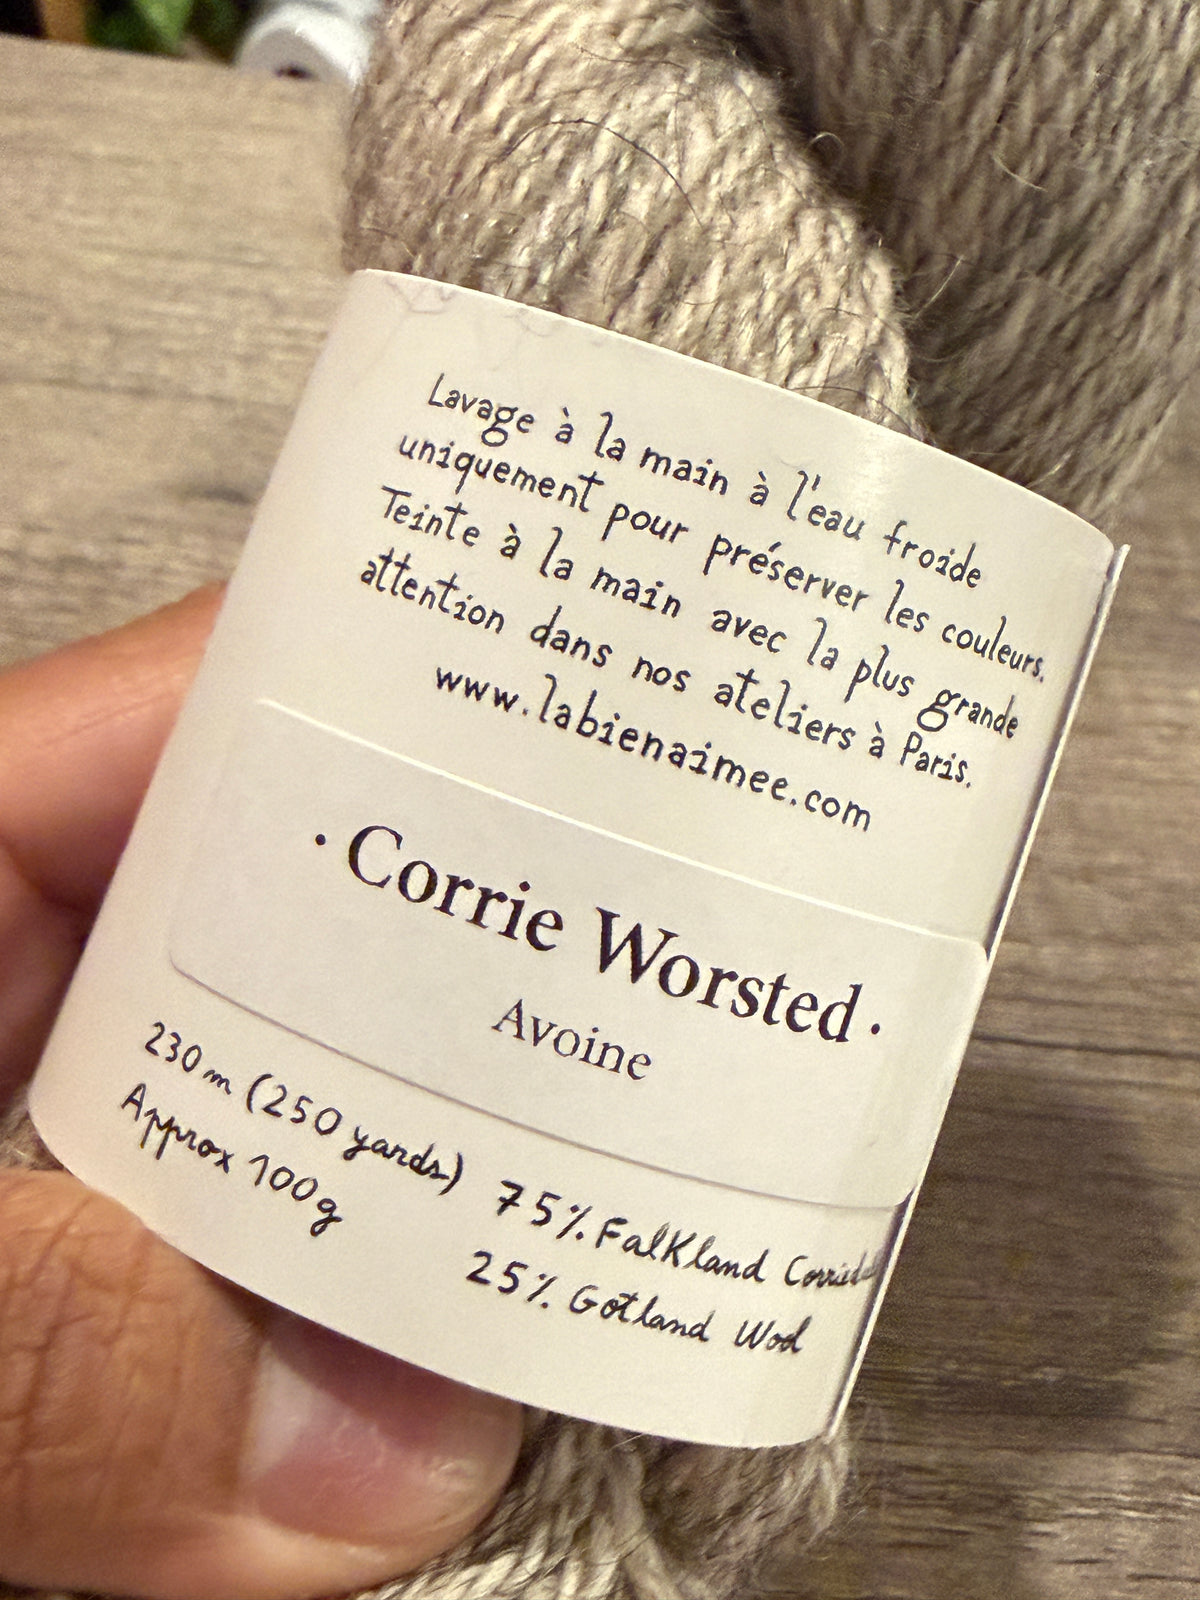 Lavage à la main à l'eau froide
uniquement pour préserver les couleurs.
Teinte à la main avec la plus grande
attention dans nos ateliers à Paris.
www.labienaimee.com
· Corrie Worsted ·
Avoine
230 m (250 yards)
Approx 100g
75% Falkland
25% Gotland Wool